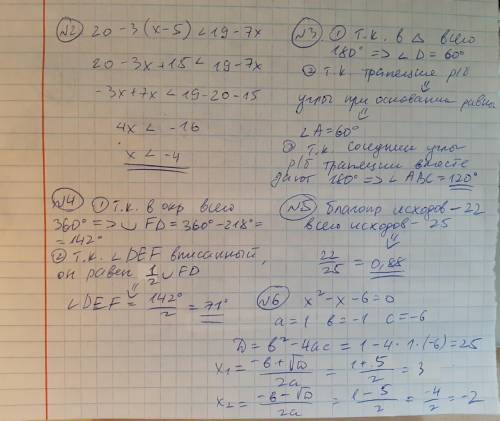 №2 20-3(x-5)<19-7x
20-3x+15<19-7x
-3x+7x<19-20-15
4x < -16
x < -4
№3 ① Т.к. в △ всего
180° => ∠D = 60°
② Т.к. трапеция р/б
⇓
углы при основании равны
⇓
∠A=60°
③ Т.к. соседние углы
р/б трапеции вместе
дают 180° => ∠ABC = 120°
№4 ① Т.к. в окр всего
360° => ◡ FD = 360°-218° =
= 142°
② Т.к. ∠DEF вписанный,
он равен 1/2 ◡ FD
⇓
∠DEF = 142°/2 = 71°
№5 Благопр исходов - 22
всего исходов - 25
⇓
22/25 = 0,88
№6 x²-x-6=0
a=1 b=-1 c=-6
D = b²-4ac = 1-4·1·(-6)=25
x₁ = -b+√D/2a = 1+5/2 = 3
x₂ = -b-√D/2a = 1-5/2 = -4/2 = -2